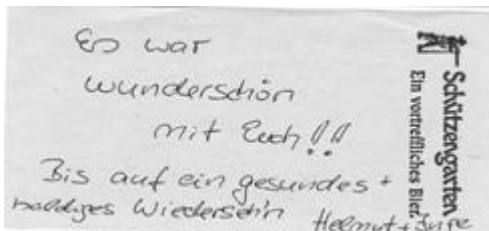 Es war
wunderschön
mit Euch!!
Bis auf ein gesundes +
baldiges Wiedersehn
Helmut +
Schützengarten
Ein vortreffliches Bier.